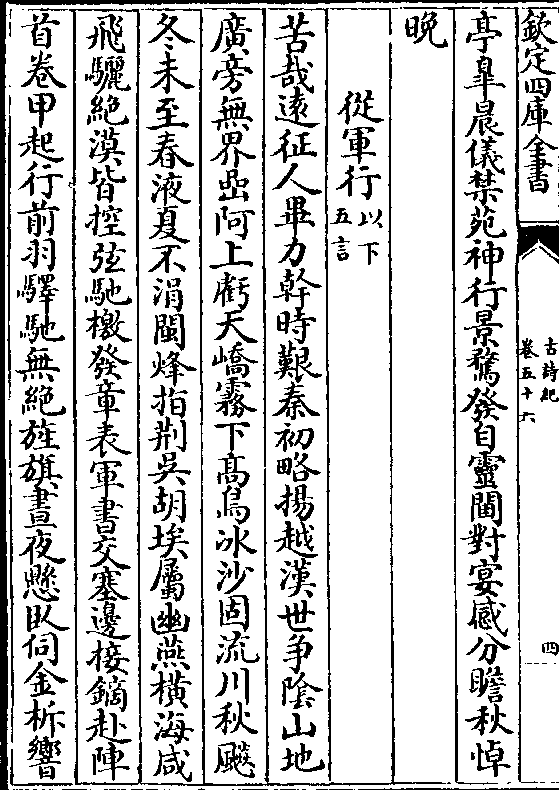 欽定四庫全書
古詩紀
卷五十六
四
亭臯晨儀禁苑神行景騖發自靈閫對宴感分瞻秋悼
晚
從軍行以下五言
苦哉遠征人畢力幹時艱秦初略揚越漢世争陰山地
廣旁無界喦阿上虧天嶠霧下髙鳥冰沙固流川秋飈
冬未至春液夏不涓閩烽指荆吳胡埃屬幽燕橫海咸
飛驪絶漠皆控弦馳檄發章表軍書交塞邊接鏑赴陣
首卷甲起行前羽驛馳無絶旌旗晝夜懸臥伺金柝響